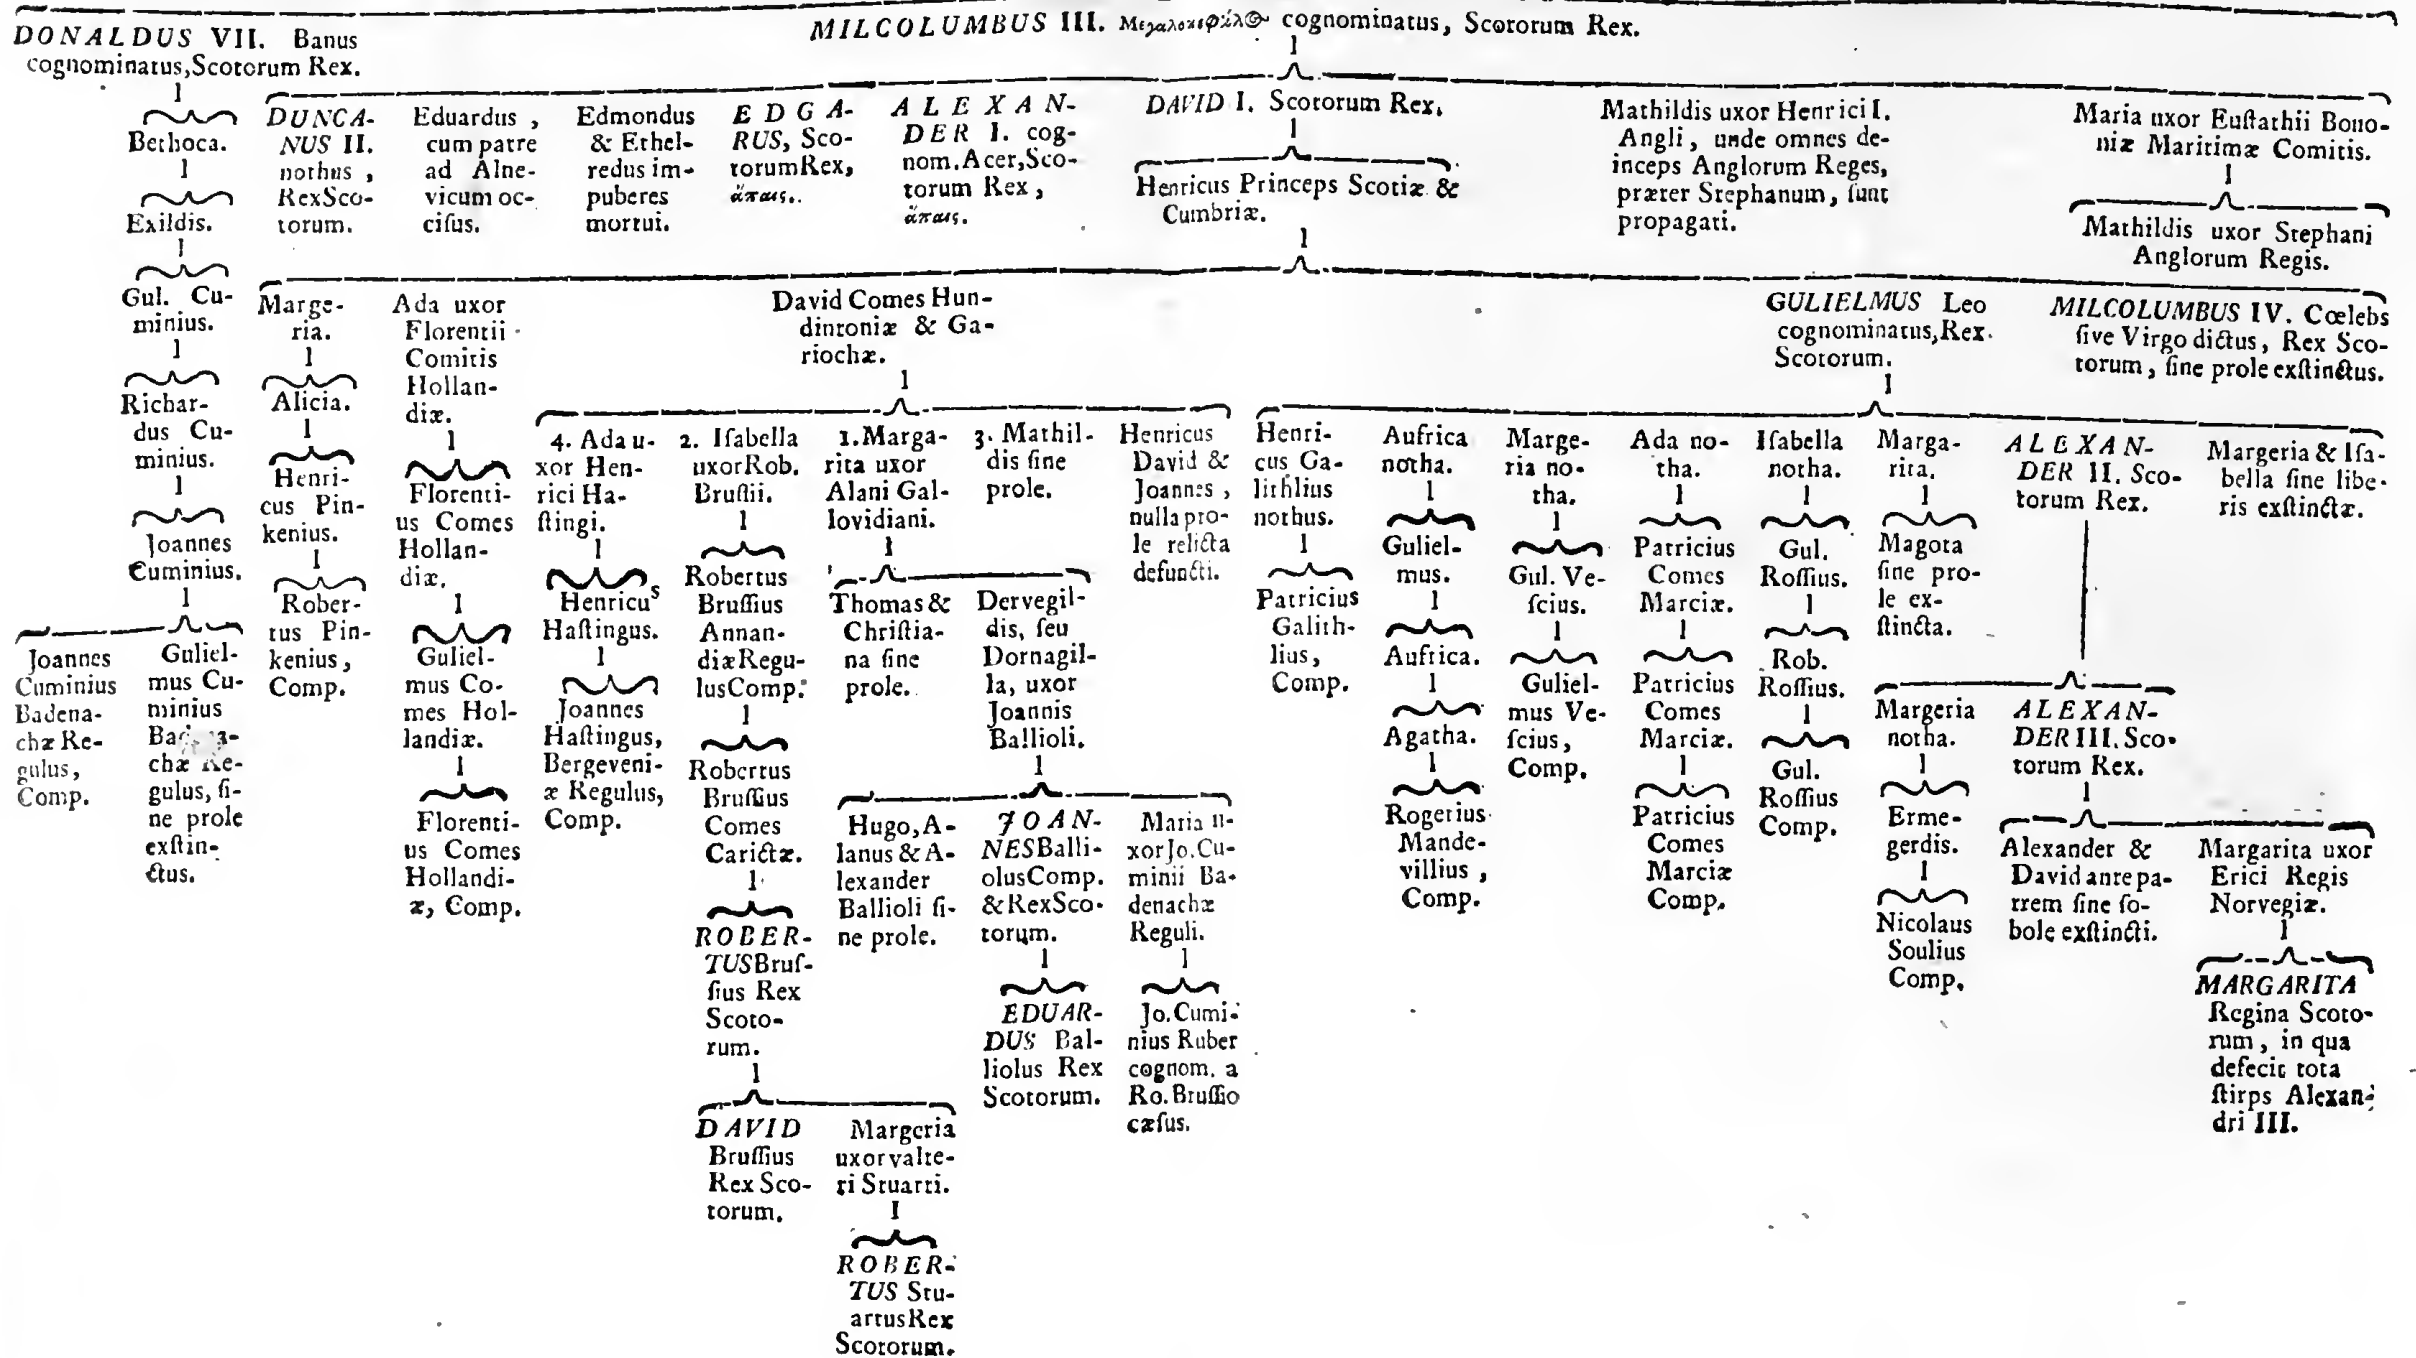 DONALDUS VII. Banus
cognominatus, Scotorum Rex.
MILCOLUMBUS III. Μεγαλοκεφάλϕ cognominatus, Scotorum Rex.
Bethoca.
Exildis.
Gul. Cu-
minius.
Richar-
dus Cu-
minius.
Joannes
Cuminius.
Joannes
Cuminius
Badena-
chæ Re-
gulus,
Comp.
Guliel-
mus Cu-
minius
chæ Re-
gulus, ſi-
ne prole
exſtin-
ctus.
DUNCA-
NUS II.
nothus,
Rex Sco-
torum.
Eduardus,
cum patre
ad Alne-
vicum oc-
ciſus.
Edmondus
& Ethel-
redus im-
puberes
mortui.
EDGA-
RUS, Sco-
torum Rex,
ἄπαις.
ALEXAN-
DER I. cog-
nom. Acer, Sco-
torum Rex,
ἄπαις.
DAVID I. Scotorum Rex.
Henricus Princeps Scotiæ &
Cumbriæ.
Mathildis uxor Henrici I.
Angli, unde omnes de-
inceps Anglorum Reges,
præter Stephanum, ſunt
propagati.
Maria uxor Euſtathii Bono-
niæ Maritimæ Comitis.
Mathildis uxor Stephani
Anglorum Regis.
Marge-
ria.
Alicia.
Henri-
cus Pin-
kenius.
Rober-
tus Pin-
kenius,
Comp.
Ada uxor
Florentii
Comitis
Hollan-
diæ.
Florenti-
us Comes
Hollan-
diæ.
Guliel-
mus Co-
mes Hol-
landiæ.
Florenti-
us Comes
Hollandi-
æ, Comp.
David Comes Hun-
dintoniæ & Ga-
riochæ.
4. Ada u-
xor Hen-
rici Ha-
ſtingi.
Henricus
Haſtingus.
Joannes
Haſtingus,
Bergeveni-
æ Regulus,
Comp.
2. Iſabella
uxor Rob.
Bruſii.
Robertus
Bruſſius
Annan-
diæ Regu-
lus Comp.
Robertus
Bruſſius
Comes
Carictæ.
ROBER-
TUS Bruſ-
ſius Rex
Scoto-
rum.
DAVID
Bruſſius
Rex Sco-
torum.
Margeria
uxor valte-
ri Stuarti.
ROBER-
TUS Stu-
artus Rex
Scotorum.
1. Marga-
rita uxor
Alani Gal-
lovidiani.
Thomas &
Chriſtia-
na ſine
prole.
Dervegil-
dis, ſeu
Dornagil-
la, uxor
Joannis
Ballioli.
Hugo, A-
lanus & A-
lexander
Ballioli ſi-
ne prole.
JOAN-
NES Balli-
olus Comp.
& Rex Sco-
torum.
EDUAR-
DUS Bal-
liolus Rex
Scotorum.
Maria u-
xor Jo. Cu-
minii Ba-
denachæ
Reguli.
Jo. Cumi-
nius Ruber
cognom. a
Ro. Bruſſio
cæſus.
3. Mathil-
dis ſine
prole.
Henricus
David &
Joannes,
nulla pro-
le relicta
defuncti.
GULIELMUS Leo
cognominatus, Rex
Scotorum.
Henri-
cus Ga-
lithlius
nothus.
Patricius
Galith-
lius,
Comp.
Aufrica
notha.
Guliel-
mus.
Aufrica.
Agatha.
Rogerius
Mande-
villius,
Comp.
Marge-
ria no-
tha.
Gul. Ve-
ſcius.
Guliel-
mus Ve-
ſcius,
Comp.
Ada no-
tha.
Patricius
Comes
Marciæ.
Patricius
Comes
Marciæ.
Patricius
Comes
Marciæ
Comp.
Iſabella
notha.
Gul.
Roſſius.
Rob.
Roſſius.
Gul.
Roſſius
Comp.
Marga-
rita.
Magota
ſine pro-
le ex-
ſtincta.
ALEXAN-
DER II. Sco-
torum Rex.
Margeria
notha.
Erme-
gerdis.
Nicolaus
Soulius
Comp.
ALEXAN-
DER III. Sco-
torum Rex.
Alexander &
David ante pa-
trem ſine ſo-
bole exſtincti.
Margarita uxor
Erici Regis
Norvegiæ.
MARGARITA
Regina Scoto-
rum, in qua
defecit tota
ſtirps Alexan-
dri III.
Margeria & Iſa-
bella ſine libe-
ris exſtinctæ.
MILCOLUMBUS IV. Cœlebs
ſive Virgo dictus, Rex Sco-
torum, ſine prole exſtinctus.